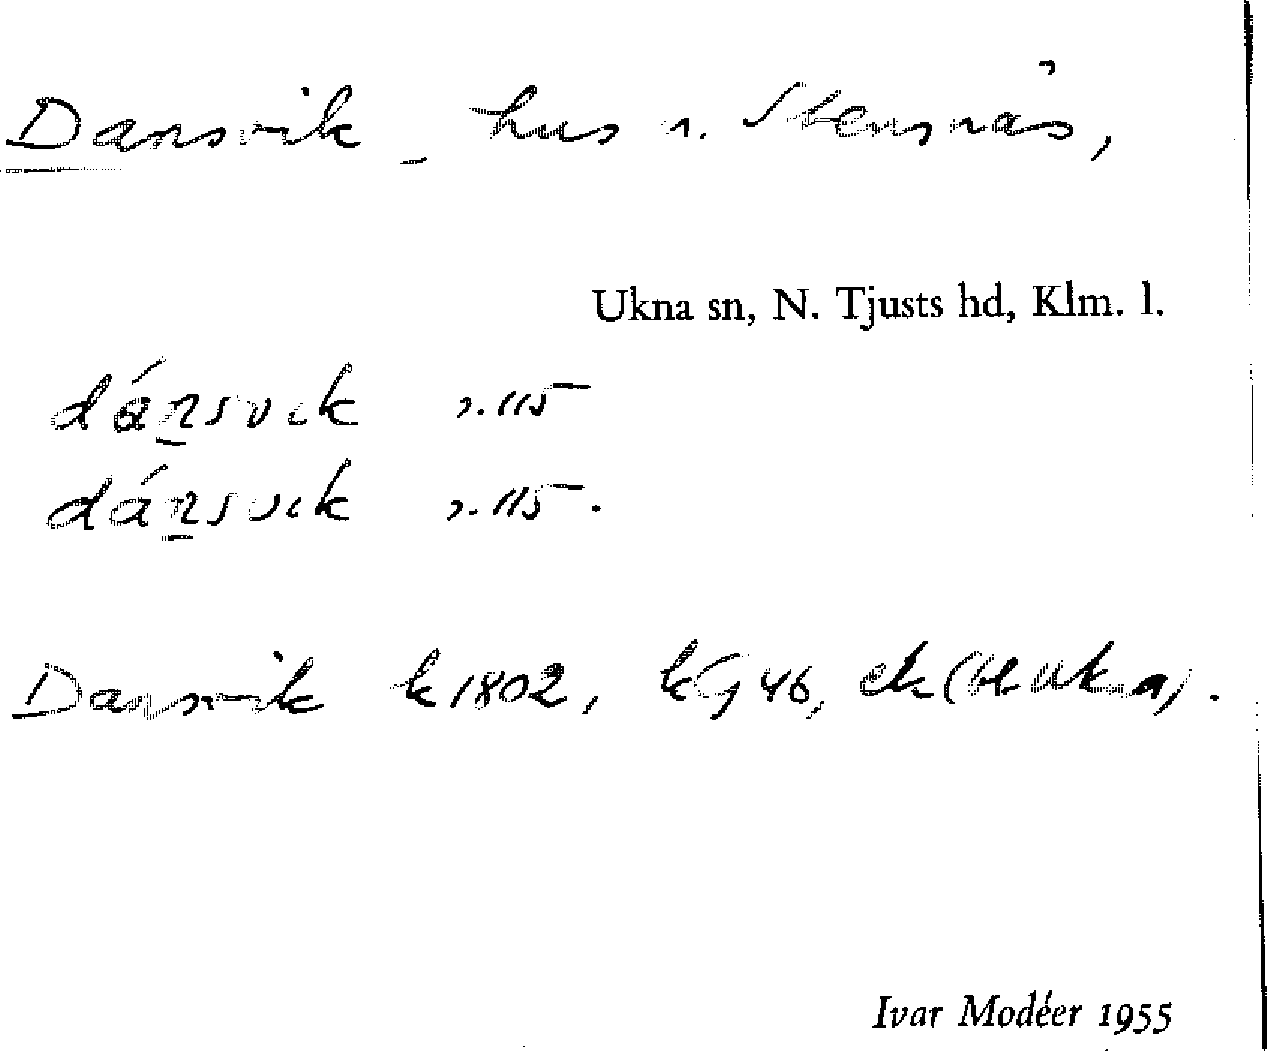 Dansvik _ hus n. Stensnäs,
Ukna sn, N. Tjusts hd, Klm. l.
dánsvik s. 115
dánsvik s. 115.
Dansvik k 1802, kG 46, ek (bl Ukna).
Ivar Modéer 1955